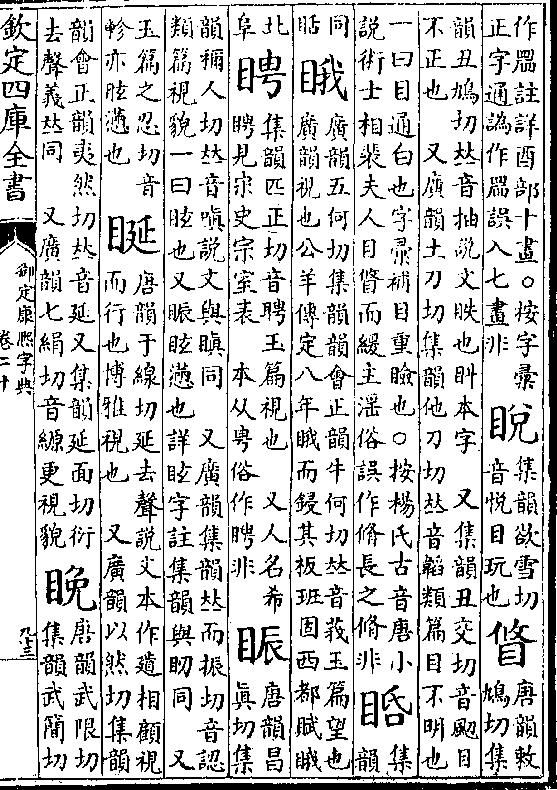 作㗊註詳酉部十畫○按字彙
正字通譌作㗊誤入七畫非
集韻欲雪切
音悅目玩也
䀺
唐韻敕
鳩切集
韻丑鳩切𠀤音抽說文眣也本字 又集韻丑交切音颵目
不正也 又廣韻土刀切集韻他刀切𠀤音韜類篇目不明也
一曰目通白也字彙補目重瞼也○按楊氏古音唐小
說術士相裴夫人目䀺而緩主淫俗誤作脩長之脩非
集
韻
同
睋
廣韻五何切集韻韻會正韻牛何切𠀤音莪玉篇望也
廣韻視也公羊傳定八年睋而鋟其板班固西都賦睋
北
阜
䀻
集韻匹正切音聘玉篇視也 又人名希
䀻見宋史宗室表 本从甹俗作聘非
䀼
唐韻昌
眞切集
韻稱人切𠀤音嗔說文與瞋同 又廣韻集韻𠀤而振切音認
類篇視貌一曰眩也又䀼眩懣也詳眩字註集韻與同 又
玉篇之忍切音
眕亦眩懣也
唐韻于線切延去聲說文本作相顧視
而行也博雅視也 又廣韻以然切集韻
韻會正韻夷然切𠀤音延又集韻延面切衍
去聲義𠀤同 又廣韻七絹切音縓更視貌
睌
唐韻武限切
集韻武簡切
欽定四庫全書
御定康熙字典
卷二十
九十三